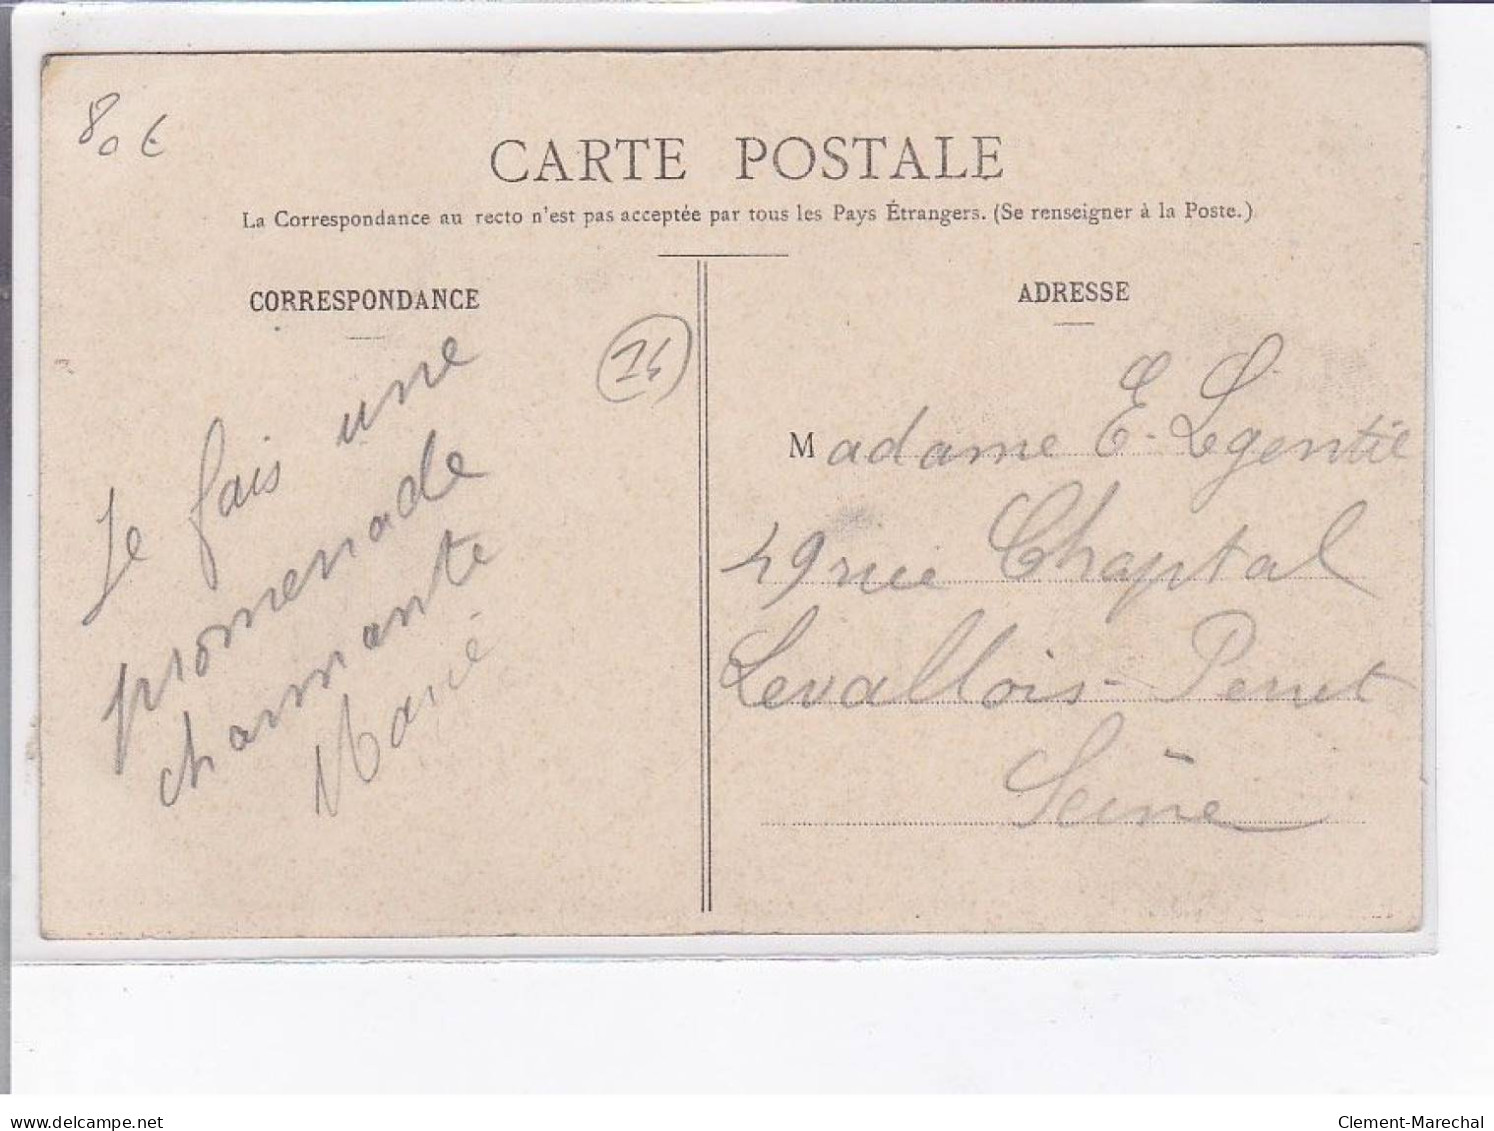 80 €
CARTE POSTALE
La Correspondance au recto n'est pas acceptée par tous les Pays Étrangers. (Se renseigner à la Poste.)
CORRESPONDANCE
Je fais une
promenade
charmante
Marie
ADRESSE
Madame E. Legentil
49 rue Chaptal
Levallois-Perret
Seine
delcampe.net
Clement-Marechal